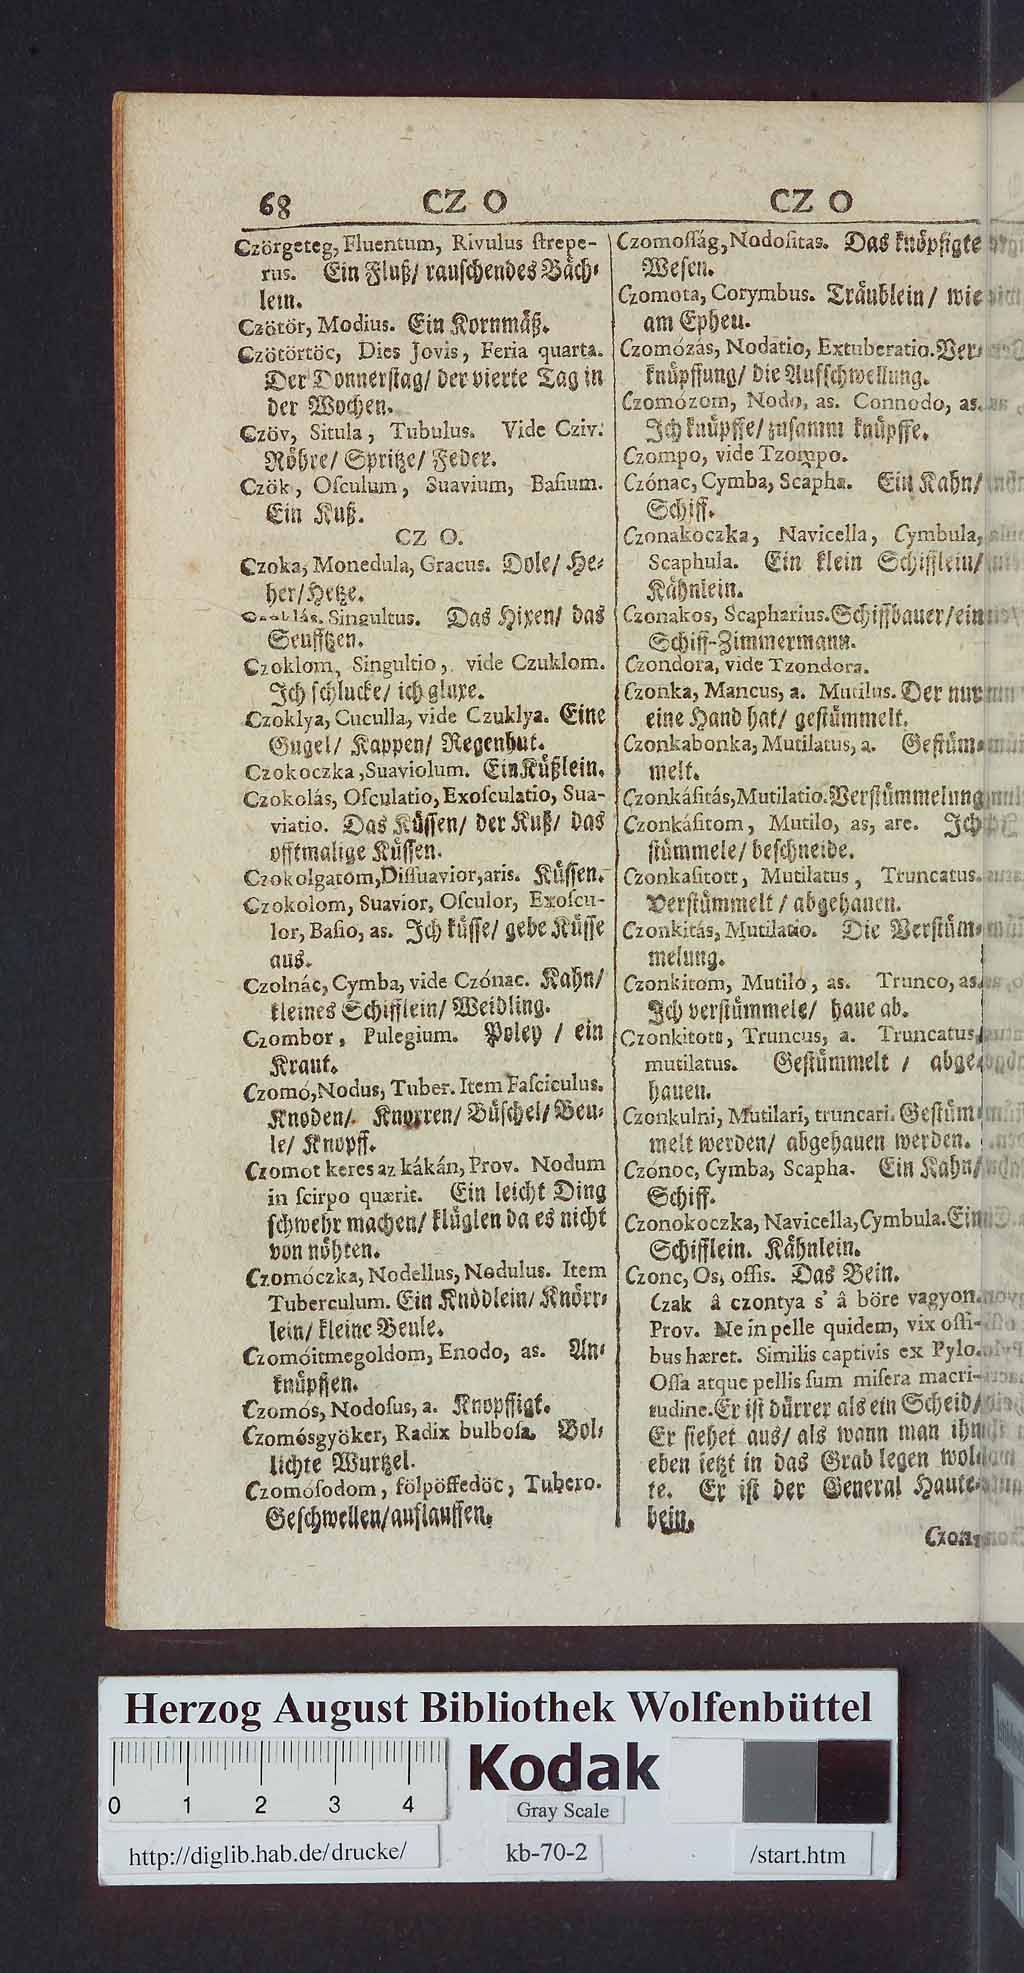 68 CZ O CZ O
Czörgeteg, Fluentum, Rivulus ſtrepe-
rus. Ein Fluß/ rauſchendes Bäch-
lein.
Czötör, Modius. Ein Kornmäß.
Czötörtöc, Dies Jovis, Feria quarta.
Der Donnerſtag/ der vierte Tag in
der Wochen.
Czöv, Situla, Tubulus. Vide Cziv.
Röhre/ Spritze/ Feder.
Czök, Oſculum, Suavium, Baſium.
Ein Kuß.
CZ O.
Czoka, Monedula, Gracus. Dole/ He-
her/ Hetze.
Czoklás, Singultus. Das Hixen/ das
Seufftzen.
Czoklom, Singultio, vide Czuklom.
Ich ſchlucke/ ich gluxe.
Czoklya, Cuculla, vide Czuklya. Eine
Gugel/ Kappen/ Regenhut.
Czokoczka, Suaviolum. Ein Küßlein.
Czokolás, Oſculatio, Exoſculatio, Sua-
viatio. Das Küſſen/ der Kuß/ das
offtmalige Küſſen.
Czokolgatom, Diſſuavior, aris. Küſſen.
Czokolom, Suavior, Oſculor, Exoſcu-
lor, Baſio, as. Ich küſſe/ gebe Küſſe
aus.
Czolnác, Cymba, vide Czónac. Kahn/
kleines Schifflein/ Weidling.
Czombor, Pulegium. Poley / ein
Kraut.
Czomó, Nodus, Tuber. Item Faſciculus.
Knoden/ Knorren/ Büſchel/ Beu-
le/ Knopff.
Czomot keres az kákán, Prov. Nodum
in ſcirpo quærit. Ein leicht Ding
ſchwehr machen/ klüglen da es nicht
von nöhten.
Czomóczka, Nodellus, Nodulus. Item
Tuberculum. Ein Knödlein/ Knörr-
lein/ kleine Beule.
Czomóitmegoldom, Enodo, as. An-
knüpffen.
Czomós, Nodoſus, a. Knopffigt.
Czomósgyöker, Radix bulboſa. Bol-
lichte Wurtzel.
Czomóſodom, fölpöffedöc, Tubero.
Geſchwellen/ aufflauffen.
Czomoſſág, Nodoſitas. Das knöpfigte
Weſen.
Czomota, Corymbus. Träublein/ wie
am Epheu.
Czomózás, Nodatio, Extuberatio. Ver-
knüpffung/ die Aufſchwellung.
Czomózom, Nodo, as. Connodo, as.
Ich knüpffe/ zuſamm knüpffe.
Czompo, vide Tzompo.
Czónac, Cymba, Scapha. Ein Kahn/
Schiff.
Czonakoczka, Navicella, Cymbula,
Scaphula. Ein klein Schifflein/
Kähnlein.
Czonakos, Scapharius. Schiffbauer/ ein
Schiff-Zimmermann.
Czondora, vide Tzondora.
Czonka, Mancus, a. Mutilus. Der nur
eine Hand hat/ geſtümmelt.
Czonkabonka, Mutilatus, a. Geſtüm-
melt.
Czonkáſitás, Mutilatio. Verſtümmelung
Czonkáſitom, Mutilo, as, are. Ich
ſtümmele/ beſchneide.
Czonkaſitott, Mutilatus, Truncatus.
Verſtümmelt / abgehauen.
Czonkitás, Mutilatio. Die Verſtüm-
melung.
Czonkitom, Mutilo, as. Trunco, as.
Ich verſtümmele/ haue ab.
Czonkitott, Truncus, a. Truncatus,
mutilatus. Geſtümmelt / abge-
hauen.
Czonkulni, Mutilari, truncari. Geſtüm-
melt werden/ abgehauen werden.
Czónoc, Cymba, Scapha. Ein Kahn/
Schiff.
Czonokoczka, Navicella, Cymbula. Ein
Schifflein. Kähnlein.
Czonc, Os, oſſis. Das Bein.
Czak â czontya s' â böre vagyon.
Prov. Ne in pelle quidem, vix oſſi-
bus hæret. Similis captivis ex Pylo.
Oſſa atque pellis ſum miſera macri-
tudine. Er iſt dürrer als ein Scheid/
Er ſiehet aus/ als wann man ihn
eben jetzt in das Grab legen wol-
te. Er iſt der General Haute-
bein.
Czon-
Herzog August Bibliothek Wolfenbüttel
0 1 2 3 4
Kodak
Gray Scale
http://diglib.hab.de/drucke/ kb-70-2 /start.htm